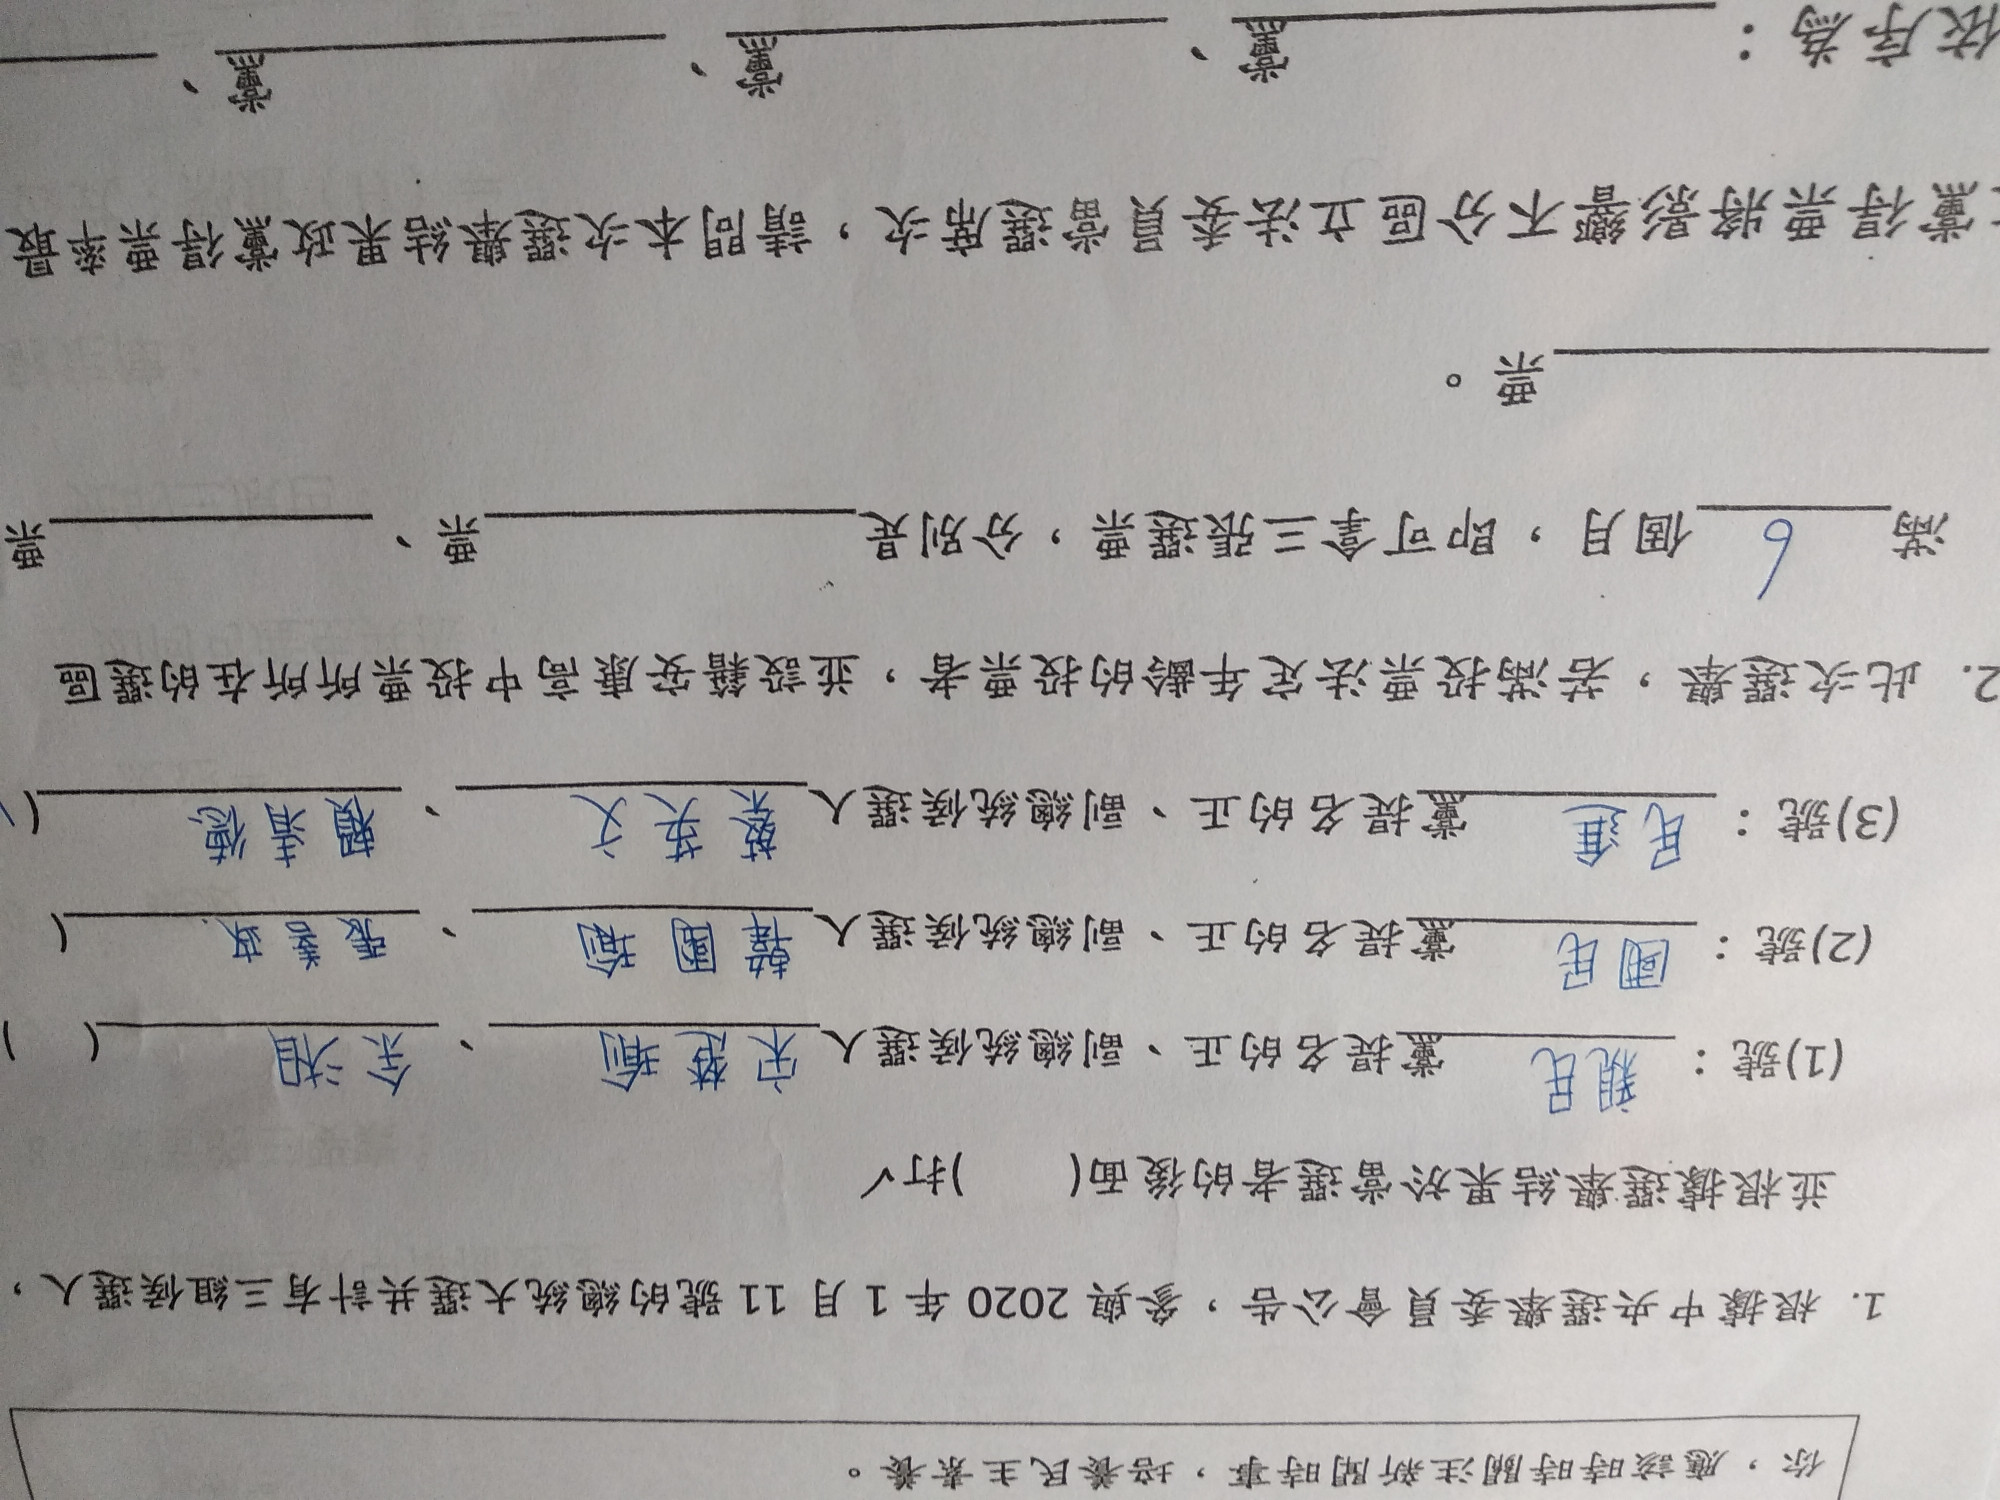 你，應該時時關注新聞時事，培養民主素養。
1. 根據中央選舉委員會公告，參與 2020 年 1 月 11 號的總統大選共計有三組候選人，
並根據選舉結果於當選者的後面(　　)打✓
(1)號：親民黨提名的正、副總統候選人宋楚瑜、余湘(　　)
(2)號：國民黨提名的正、副總統候選人韓國瑜、張善政(
(3)號：民進黨提名的正、副總統候選人蔡英文、賴清德(
2. 此次選舉，若滿投票法定年齡的投票者，並設籍安康高中投票所所在的選區
滿6個月，即可拿三張選票，分別是＿＿＿＿票、＿＿＿＿票
＿＿＿＿票。
黨得票將影響不分區立法委員當選席次，請問本次選舉結果政黨得票率最
依序為：＿＿＿＿黨、＿＿＿＿黨、＿＿＿＿黨、＿＿＿＿